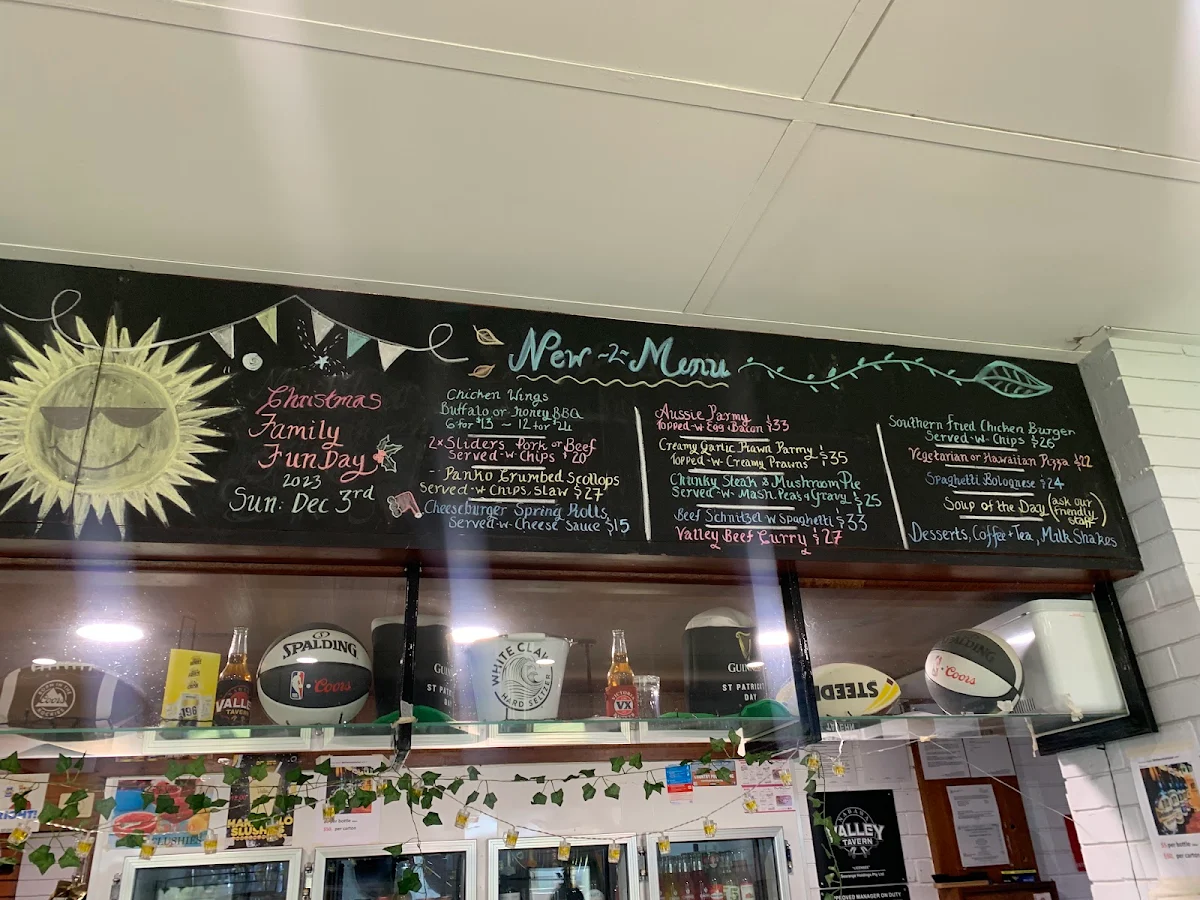 New -2- Menu
Christmas
Family
FunDay
2023
Sun: Dec 3rd
Chicken Wings
Buffalo or Honey BBQ
6 for $13 ~ 12 for $24
2x Sliders Pork or Beef
Served-w-Chips $20
Panko Crumbed Scollops
Served-w Chips, Slaw $27
Cheeseburger Spring Rolls
Served-w-Cheese Sauce $15
Aussie Parmy
Topped-w Egg & Bacon $33
Creamy Garlic Prawn Parmy
Topped-w-Creamy Prawns $35
Chunky Steak & Mushroom Pie
Served-w-Mash, Peas & Gravy $25
Beef Schnitzel w Spaghetti $33
Valley Beef Curry $27
Southern Fried Chicken Burger
Served-w-Chips $26
Vegetarian or Hawaiian Pizza $22
Spaghetti Bolognese $24
Soup of the Day (ask our friendly staff)
Desserts, Coffee + Tea, Milk Shakes
SPALDING
Coors
VALLEY
GUIN
ST PATRI
DAY
WHITE CLAW
HARD SELTZER
VX
GUIN
ST PATRI
DAY
STEED
SPALDING
Coors
SLUSHIES
SLUSHIE
VALLEY
TAVERN
OVED MANAGER ON DUTY
per carton
per bottle
per carton